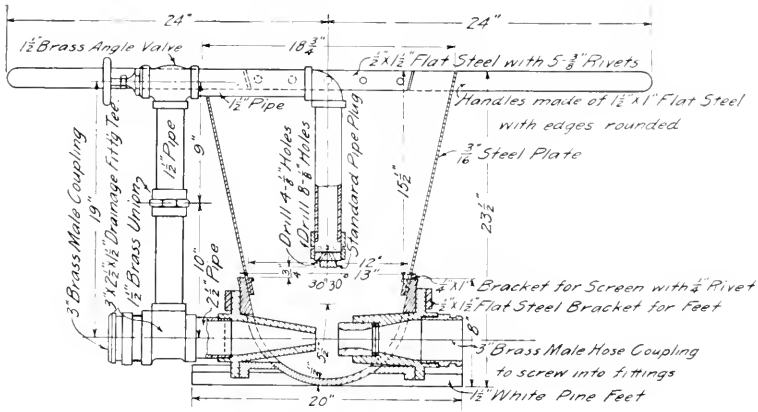 24"
24"
1½" Brass Angle Valve
18¾"
½" x 1½" Flat Steel with 5-⅜" Rivets
1½" Pipe
Handles made of 1½" x 1" Flat Steel
with edges rounded
3/16" Steel Plate
3" Brass Male Coupling
19"
3" x 2½" x 1½" Drainage Fitt'g Tee
1½" Brass Union
1½" Pipe
9"
10"
2½" Pipe
Drill 4-⅛" Holes
Drill 8-⅛" Holes
Standard Pipe Plug
15½"
23½"
12"
13"
¾"
30° 30°
¼" x 1" Bracket for Screen with ¼" Rivet
½" x 1½" Flat Steel Bracket for Feet
8"
5½"
½"
3" Brass Male Hose Coupling
to screw into fittings
1½" White Pine Feet
20"